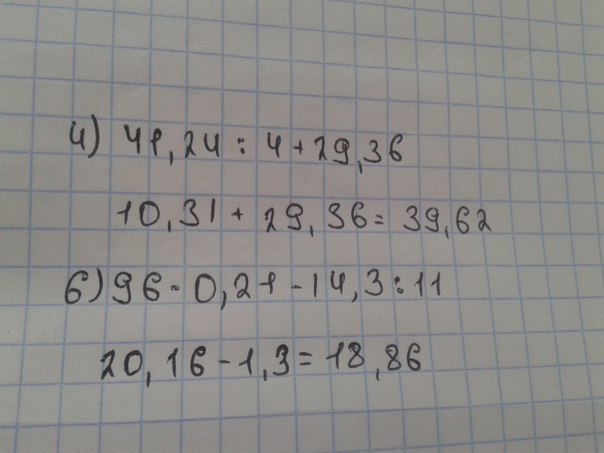 4) 41,24 : 4 + 29,36
10,31 + 29,36 = 39,62
6) 96 · 0,21 - 14,3 : 11
20,16 - 1,3 = 18,86